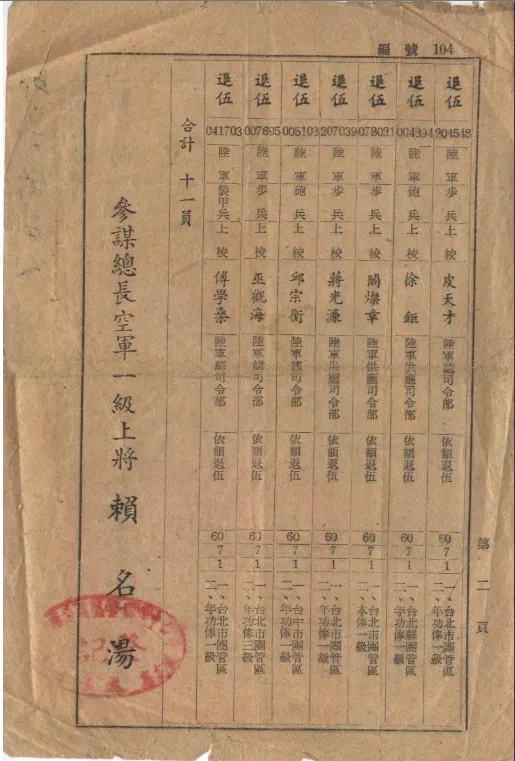 編號 104
退伍 204548 陸軍步兵上校 皮天才 陸軍總司令部 依額退伍 60 7 1 一、台北市團管區 二、年功俸一級
退伍 陸軍砲兵上校 徐鉅 陸軍供應司令部 依額退伍 60 7 1 一、台北縣團管區 二、年功俸一級
退伍 陸軍步兵上校 閻燦章 陸軍供應司令部 依額退伍 60 7 1 一、台北市團管區 二、本俸一級
退伍 207039 陸軍步兵上校 蔣光源 陸軍供應司令部 依額退伍 60 7 1 一、台北市團管區 二、年功俸一級
退伍 005102 陸軍砲兵上校 邱宗衡 陸軍總司令部 依額退伍 60 7 1 一、台中市團管區 二、年功俸一級
退伍 007695 陸軍步兵上校 巫觀海 陸軍總司令部 依額退伍 60 7 1 一、台北市團管區 二、年功俸三級
退伍 041703 陸軍裝甲兵上校 傅學桑 陸軍總司令部 依額退伍 60 7 1 一、台北市團管區 二、年功俸一級
合計 十一員
參謀總長空軍一級上將 賴名湯
第二頁